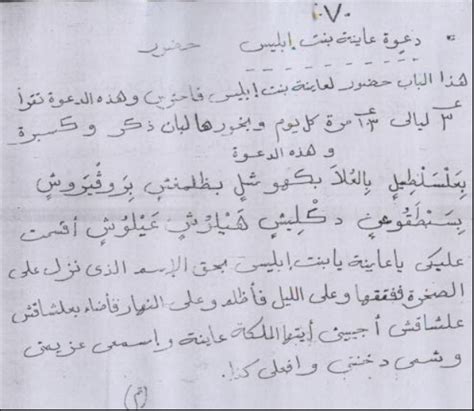 ٧٠
* دعوة عاينة بنت إبليس حضور
هذا الباب حضور لعاينة بنت إبليس فاحترس وهذه الدعوة تقرأ
٣ ليالى ١٣ مرة كل يوم وبخورها لبان ذكر وكسبرة
وهذه الدعوة
بعلسلطيل بالعلا بكهو شل بظلمنش بروڤيروش
دكليش هيلرش عيلوش أقسمت
عليكى ياعاينة يابنت إبليس بحق الإسم الذى نزل على
الصخرة ففتقها وعلى الليل فأظلم وعلى النهار فأضاء بعلشاقش
علشاقش أجيبى أيتها الملكة عاينة وإسمعى عزيمتى
وشمى دخنتى وافعلى كذا.
(م)